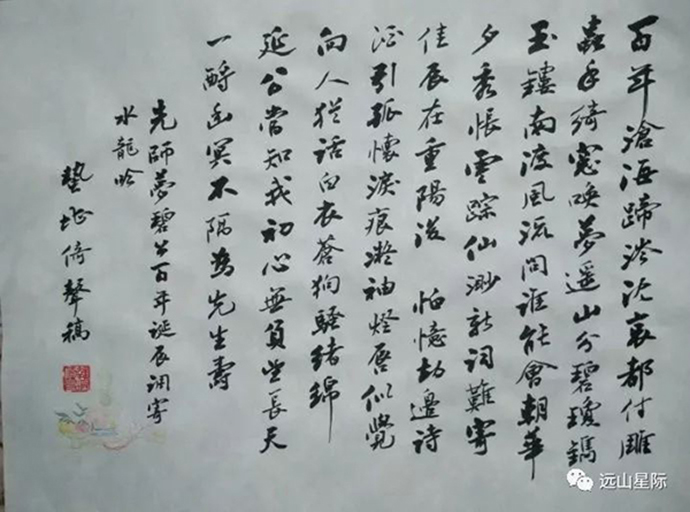 百年滄海蹄涔沈哀都付雕
蟲手綺窗喚夢遥山分碧瓊鎸
玉鏤南渡風流問誰能會朝華
夕秀悵雲踪仙渺新詞難寄
佳辰在重陽後 怕憶劫邊詩
酒引孤懷淚痕凝袖燈唇似覺
向人猶話白衣蒼狗騷緒綿
延公當知我初心無負望長天
一酹幽冥不隔為先生壽
先師夢碧公百年誕辰調寄
水龍吟
蟄堪倚聲稿
远山星际